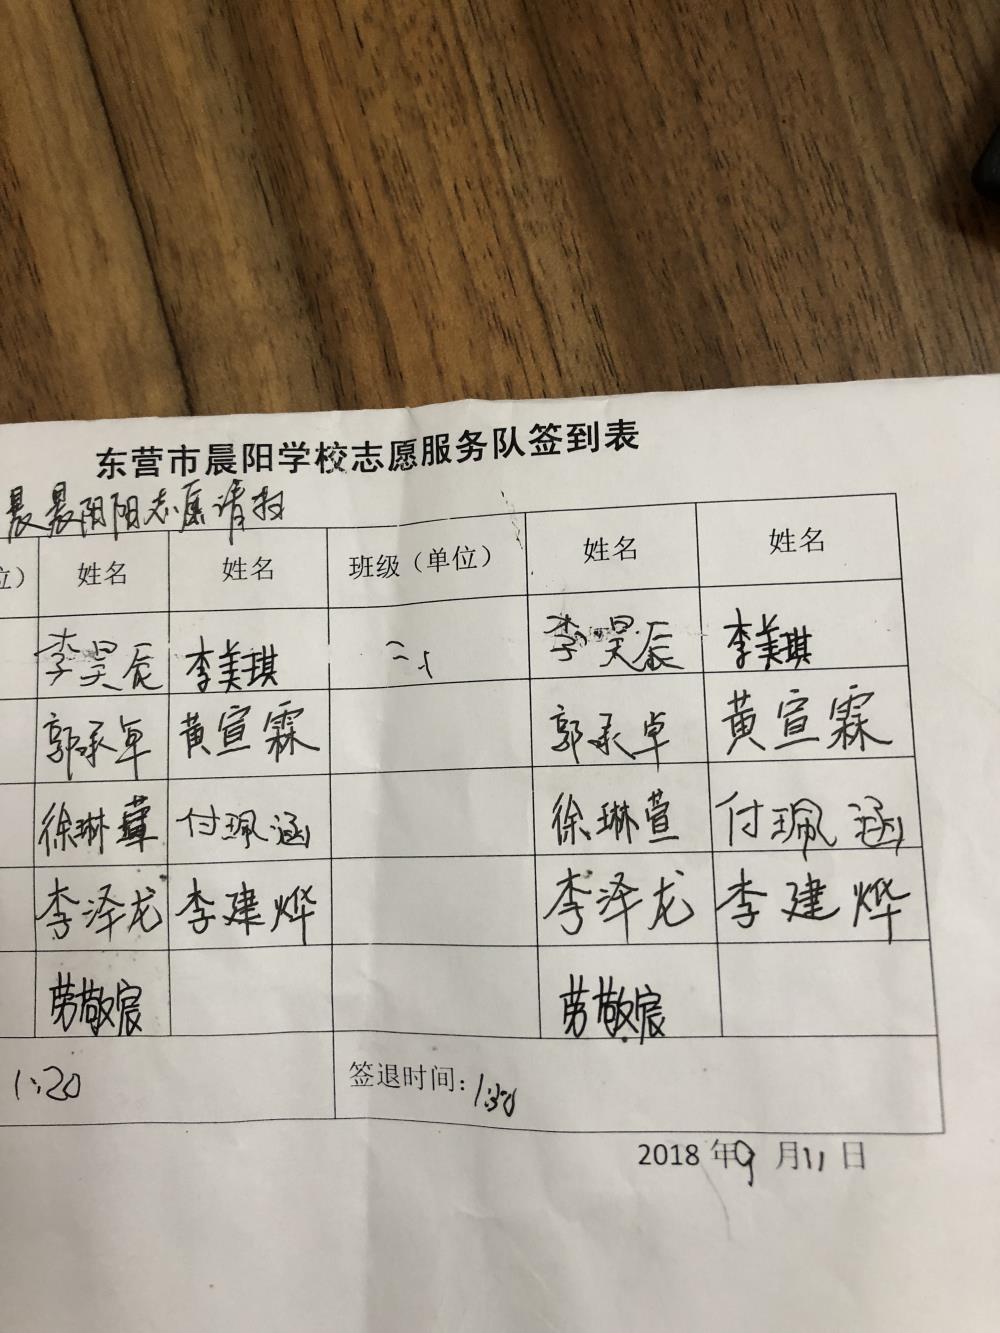 东营市晨阳学校志愿服务队签到表
晨晨阳阳志愿清扫
位） 姓名 姓名 班级（单位） 姓名 姓名
李昊辰 李美琪 二、 李昊辰 李美琪
郭承卓 黄宣霖 郭承卓 黄宣霖
徐琳萱 付珮涵 徐琳萱 付珮涵
李泽龙 李建烨 李泽龙 李建烨
劳敬宸 劳敬宸
1:20 签退时间：1:30
2018 年9 月11 日